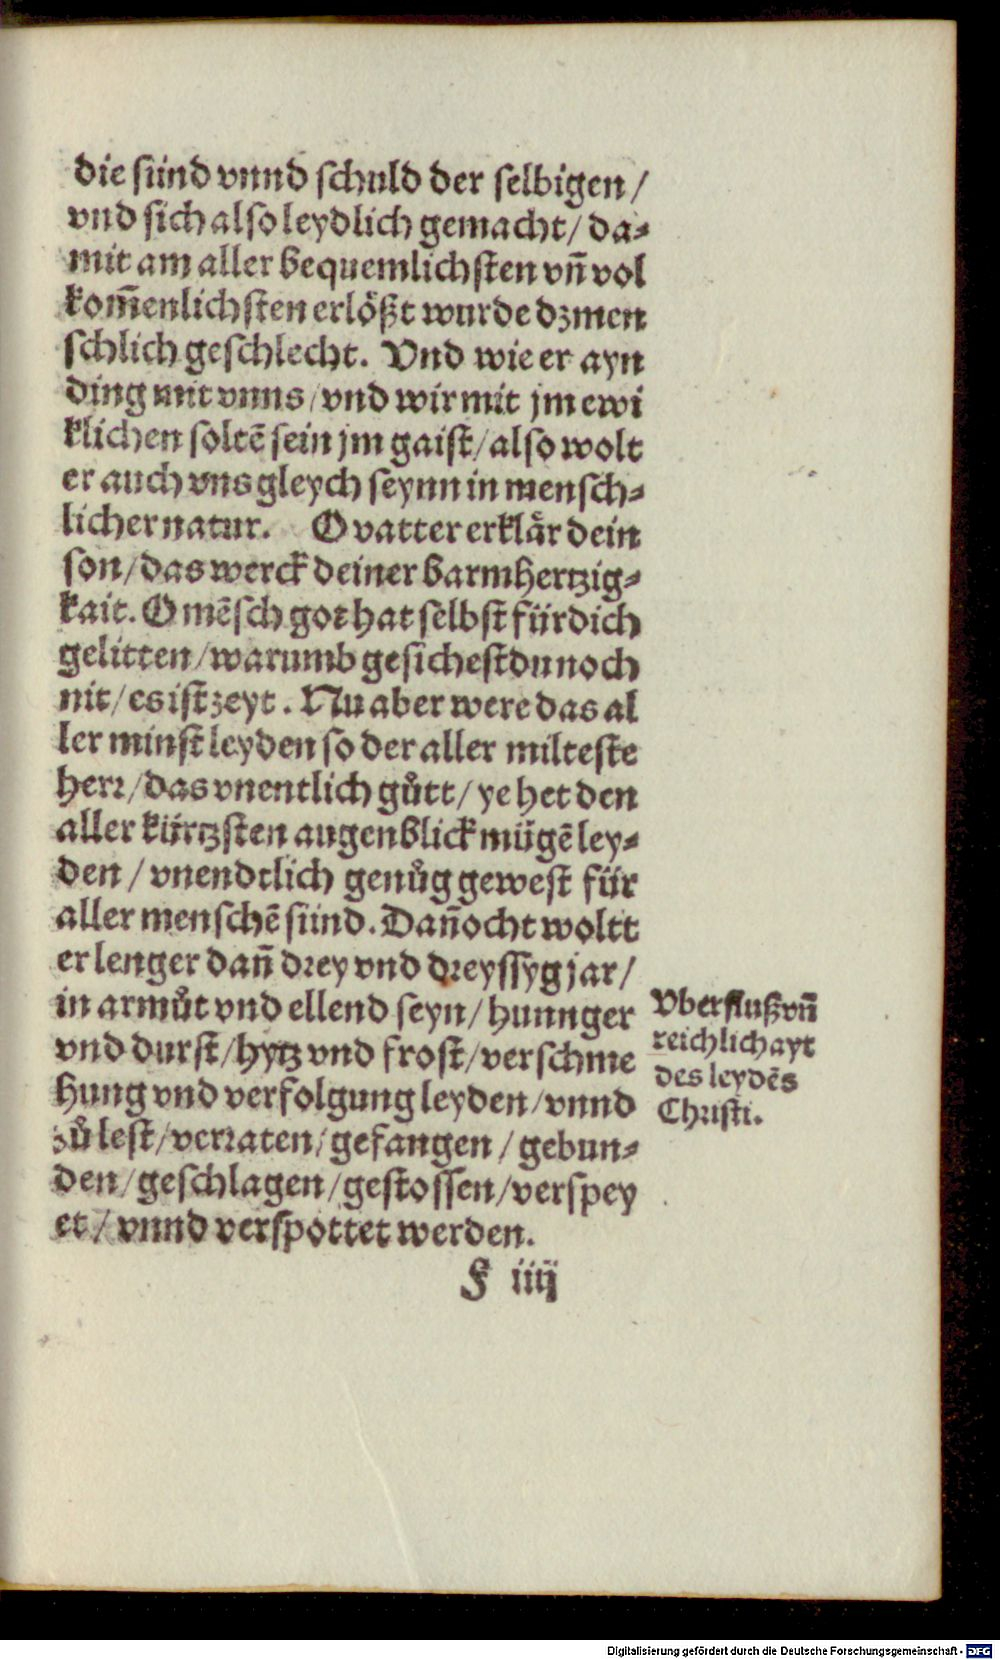 die sünd vnnd schuld der selbigen /
vnd sich also leydlich gemacht / da⸗
mit am aller bequemlichsten vn̄ vol
kom̄enlichsten erlößt wurde dz men
schlich geschlecht. Vnd wie er ayn
ding mit vnns / vnd wir mit jm ewi
klichen soltē sein jm gaist / also wolt
er auch vns gleych seynn in mensch⸗
licher natur. O vatter erklär dein
son / das werck deiner barmhertzig⸗
kait. O mēsch got hat selbst für dich
gelitten / warumb gesichest du noch
nit / es ist zeyt. Nu aber were das al
ler minst leyden so der aller milteste
herr / das vnentlich gůtt / ye het den
aller kürtzsten augenblick mügē ley⸗
den / vnendtlich genůg gewest für
aller menschē sünd. Dan̄ocht woltt
er lenger dan̄ drey vnd dreyssyg jar /
in armůt vnd ellend seyn / hunnger
vnd durst / hytz vnd frost / verschme
hung vnd verfolgung leyden / vnnd
zů lest / verraten / gefangen / gebun⸗
den / geschlagen / gestossen / verspey
et / vnnd verspottet werden.
F iiij
Vberfluß vn̄
reichlichayt
des leydēs
Christi.
Digitalisierung gefördert durch die Deutsche Forschungsgemeinschaft - DFG